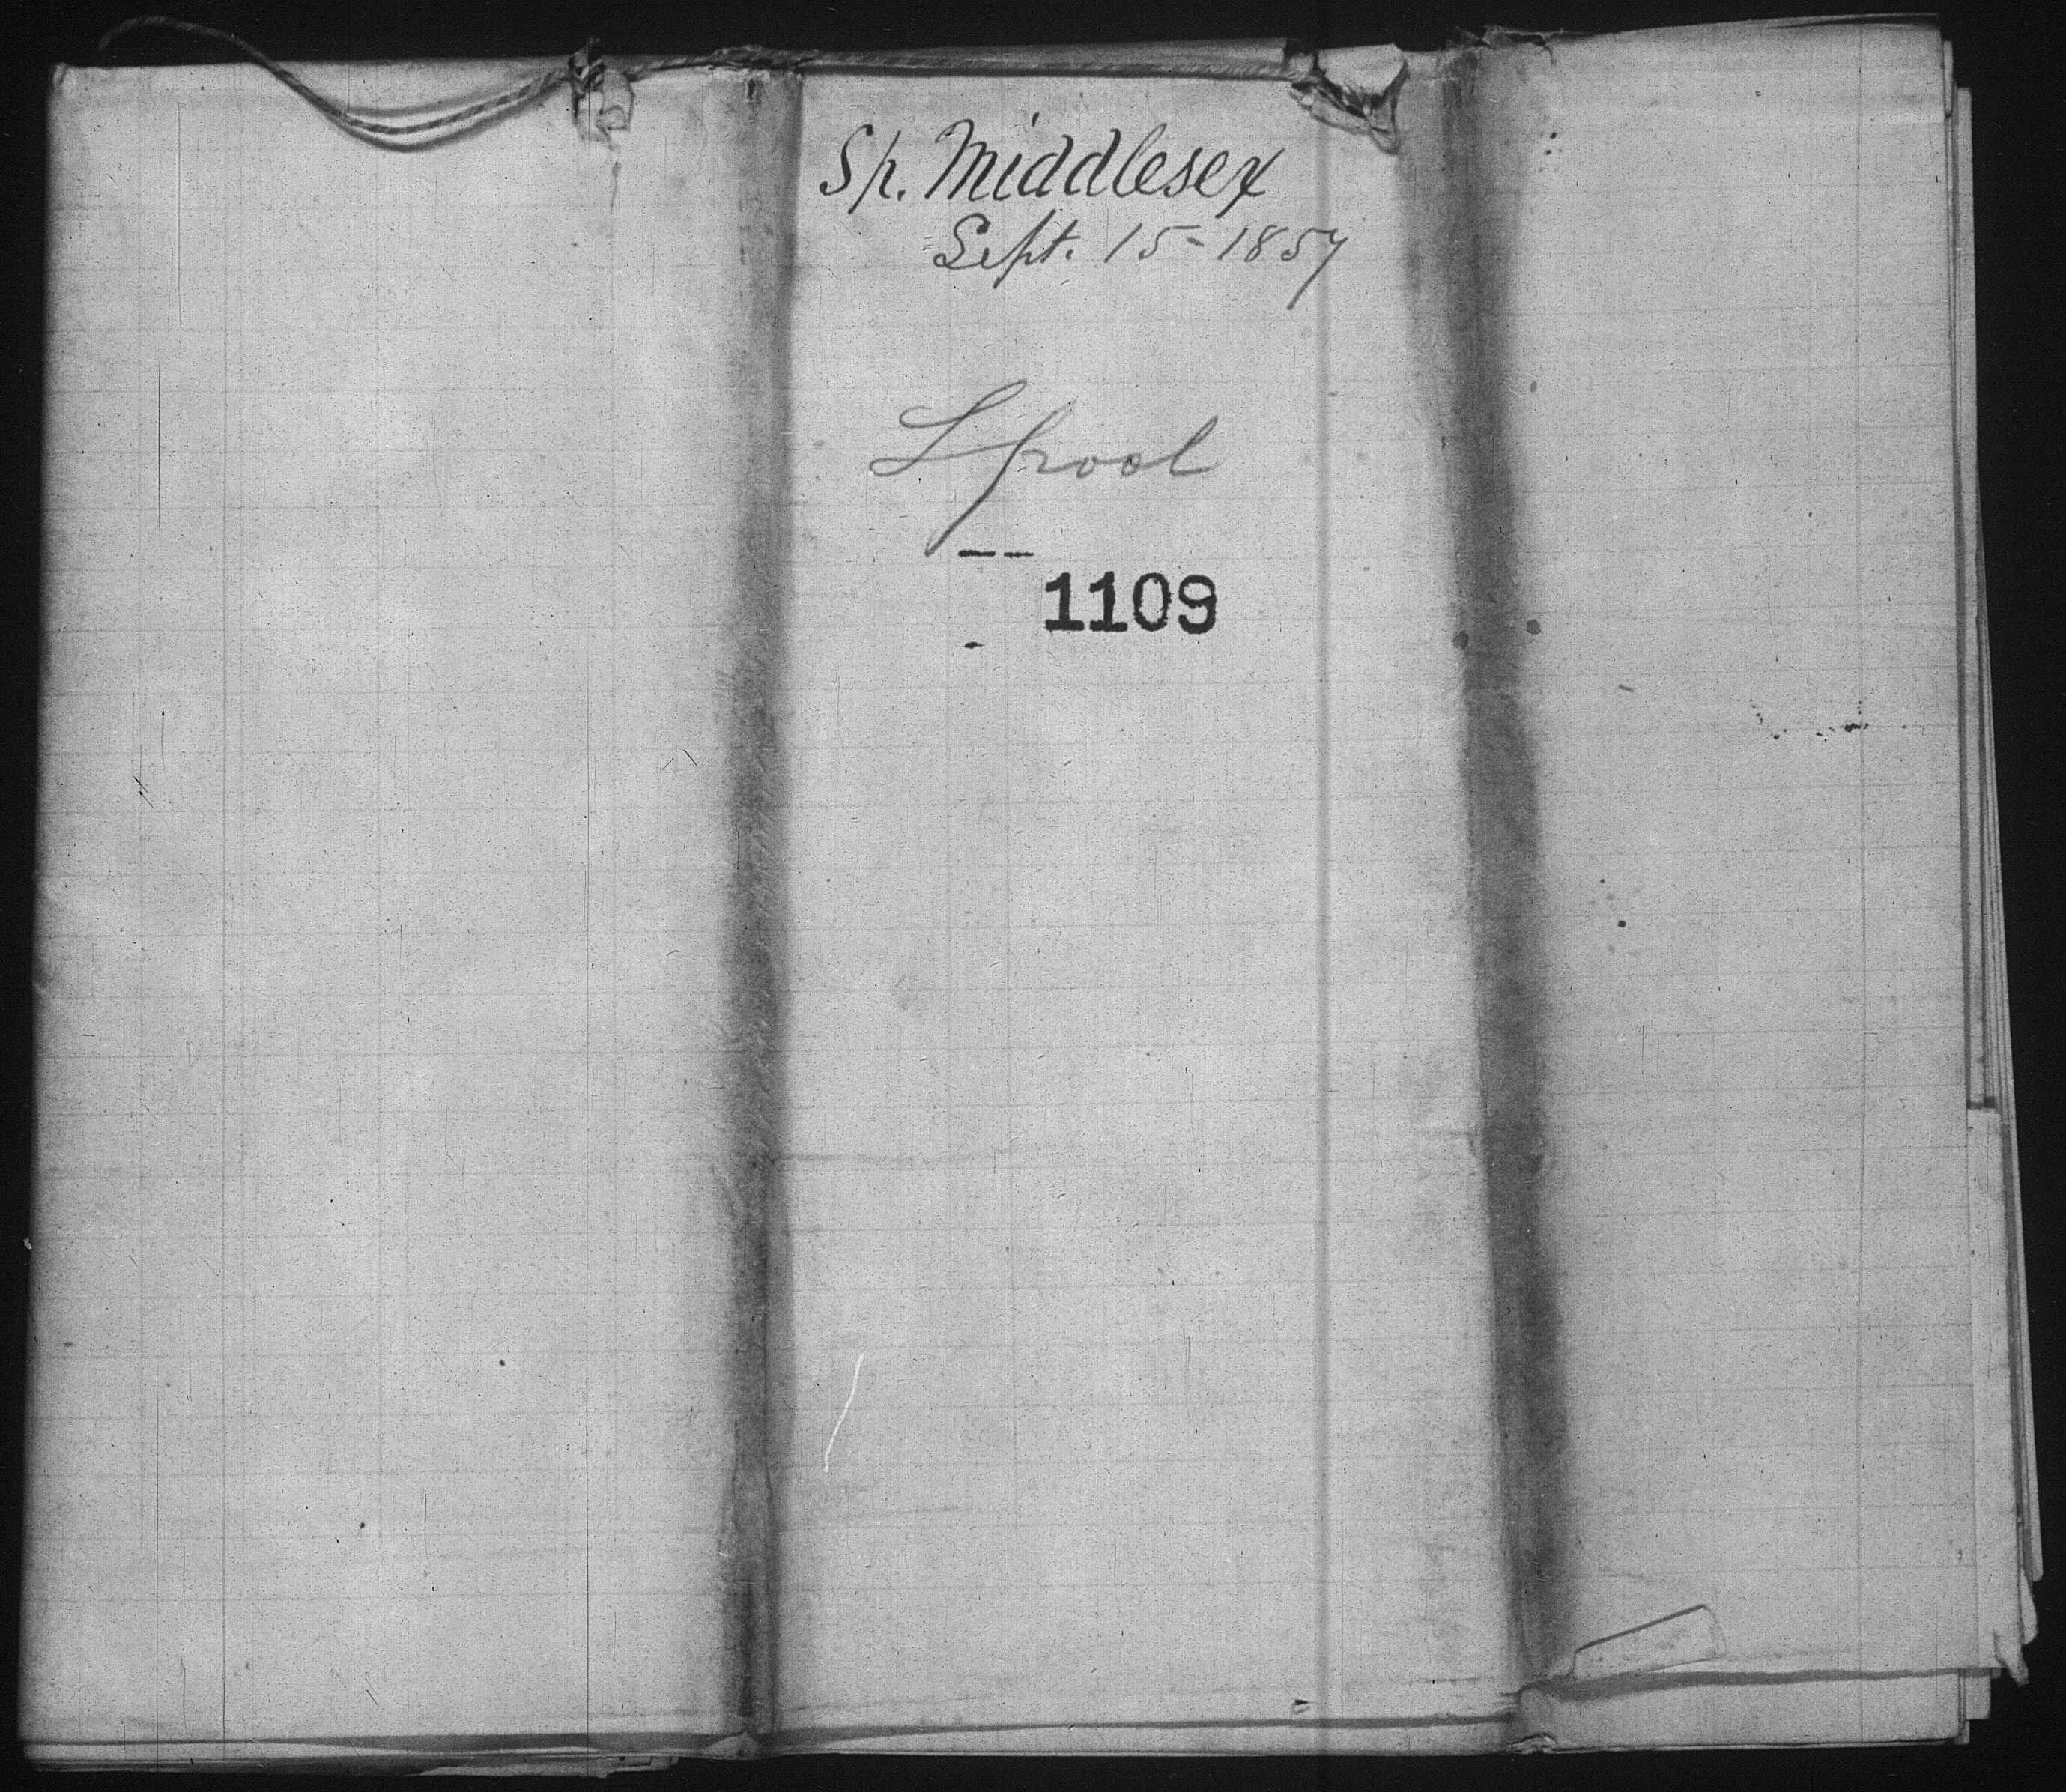 Sp. Middlesex
Sept. 15 - 1857
Lpool
1109